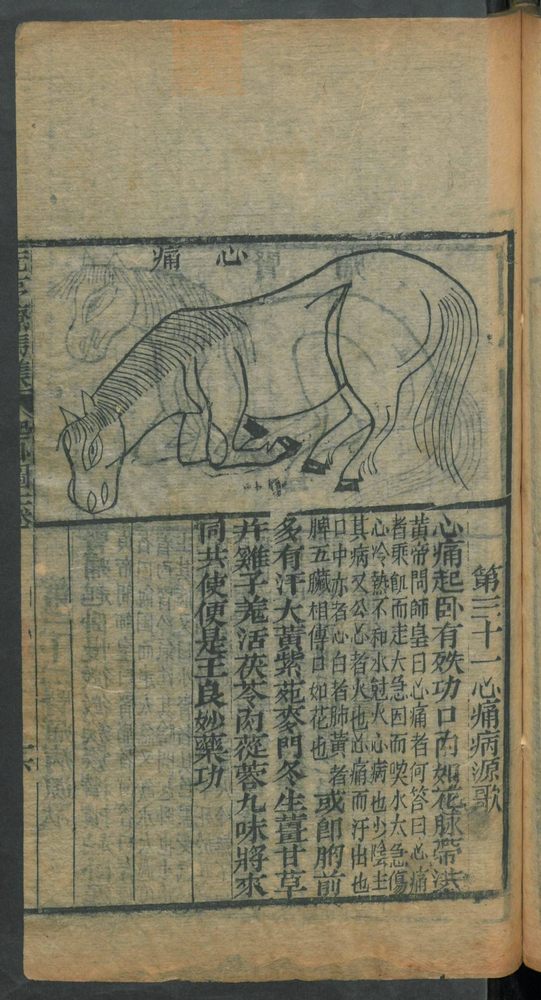 心痛
第三十一心痛病源歌
心痛起卧有殃功口内如花脉帶洪
黃帝問師皇曰心痛者何答曰心痛
者乘飢而走大急因而喫水太急傷
心冷熱不和水尅火心病也少陰主
其病又公心者火也心痛而汗出也
口中亦者心白者肺黃者
脾五臟相傳曰如花也
或卽胸前
多有汗大黃紫菀麥門冬生薑甘草
并雞子羗活茯苓肉蓯蓉九味將來
同共使便是王良妙藥功